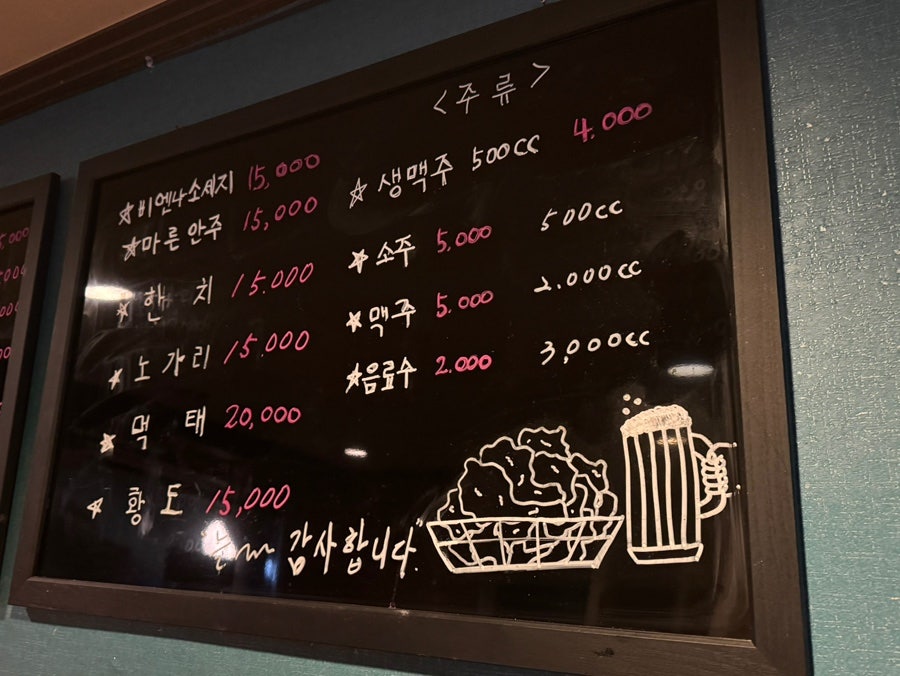 ☆비엔나소세지 15,000
☆마른안주 15,000
☆한 치 15.000
☆노가리 15.000
☆먹 태 20,000
☆황 도 15,000
<주류>
☆생맥주 500cc 4.000
☆소주 5.000 500cc
☆맥주 5.000 2.000cc
☆음료수 2.000 3,000cc
감사합니다"